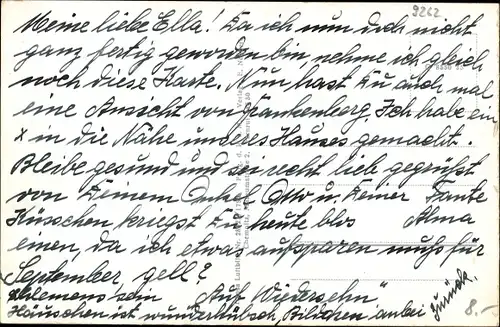 9262
Meine liebe Ella! Da ich nun doch nicht
ganz fertig geworden bin nehme ich gleich
noch diese Karte. Nun hast Du auch mal
eine Ansicht von Frankenberg, Ich habe ein
x in die Nähe unseres Hauses gemacht.
Bleibe gesund und sei recht lieb gegrüßt
von Deinem Onkel Otto u. Deiner Tante
Küsschen kriegst Du heute blos Alma
einen, da ich etwas aufsparen muß für
September, gell?
sein "Auf Wiedersehn"
Häuschen ist wunderhübsch, Bildchen anbei zurück.
8.-